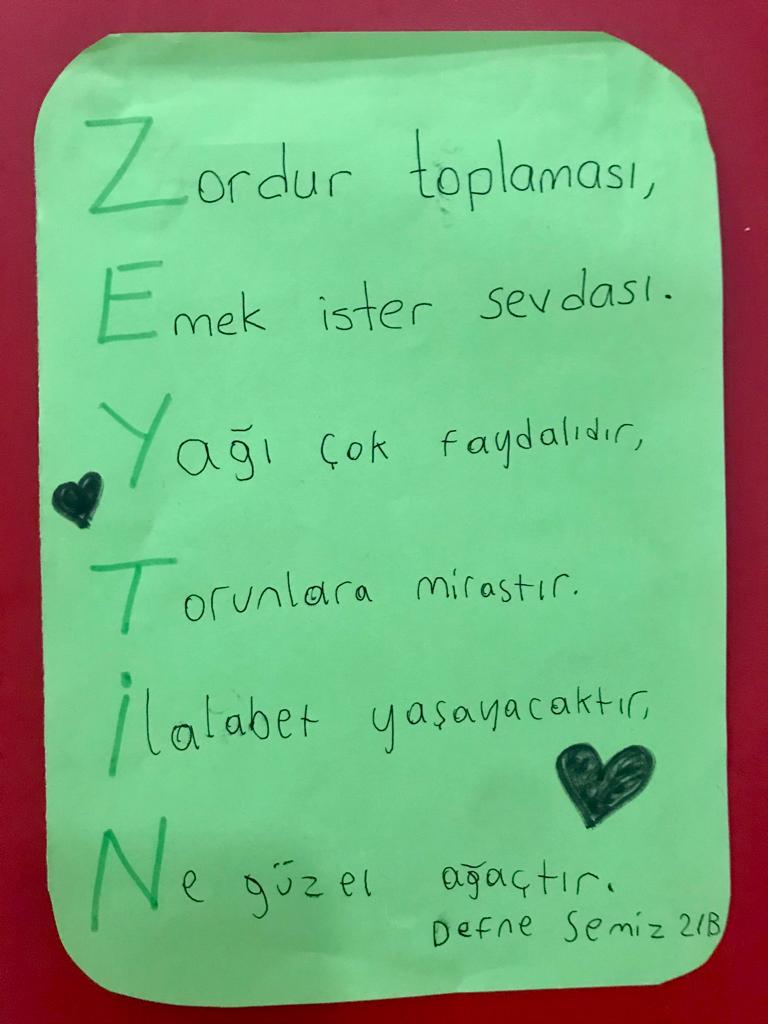 Zordur toplaması,
Emek ister sevdası.
Yağı çok faydalıdır,
Torunlara mirastır.
İlalabet yaşayacaktır,
Ne güzel ağaçtır.
Defne Semiz 2/B